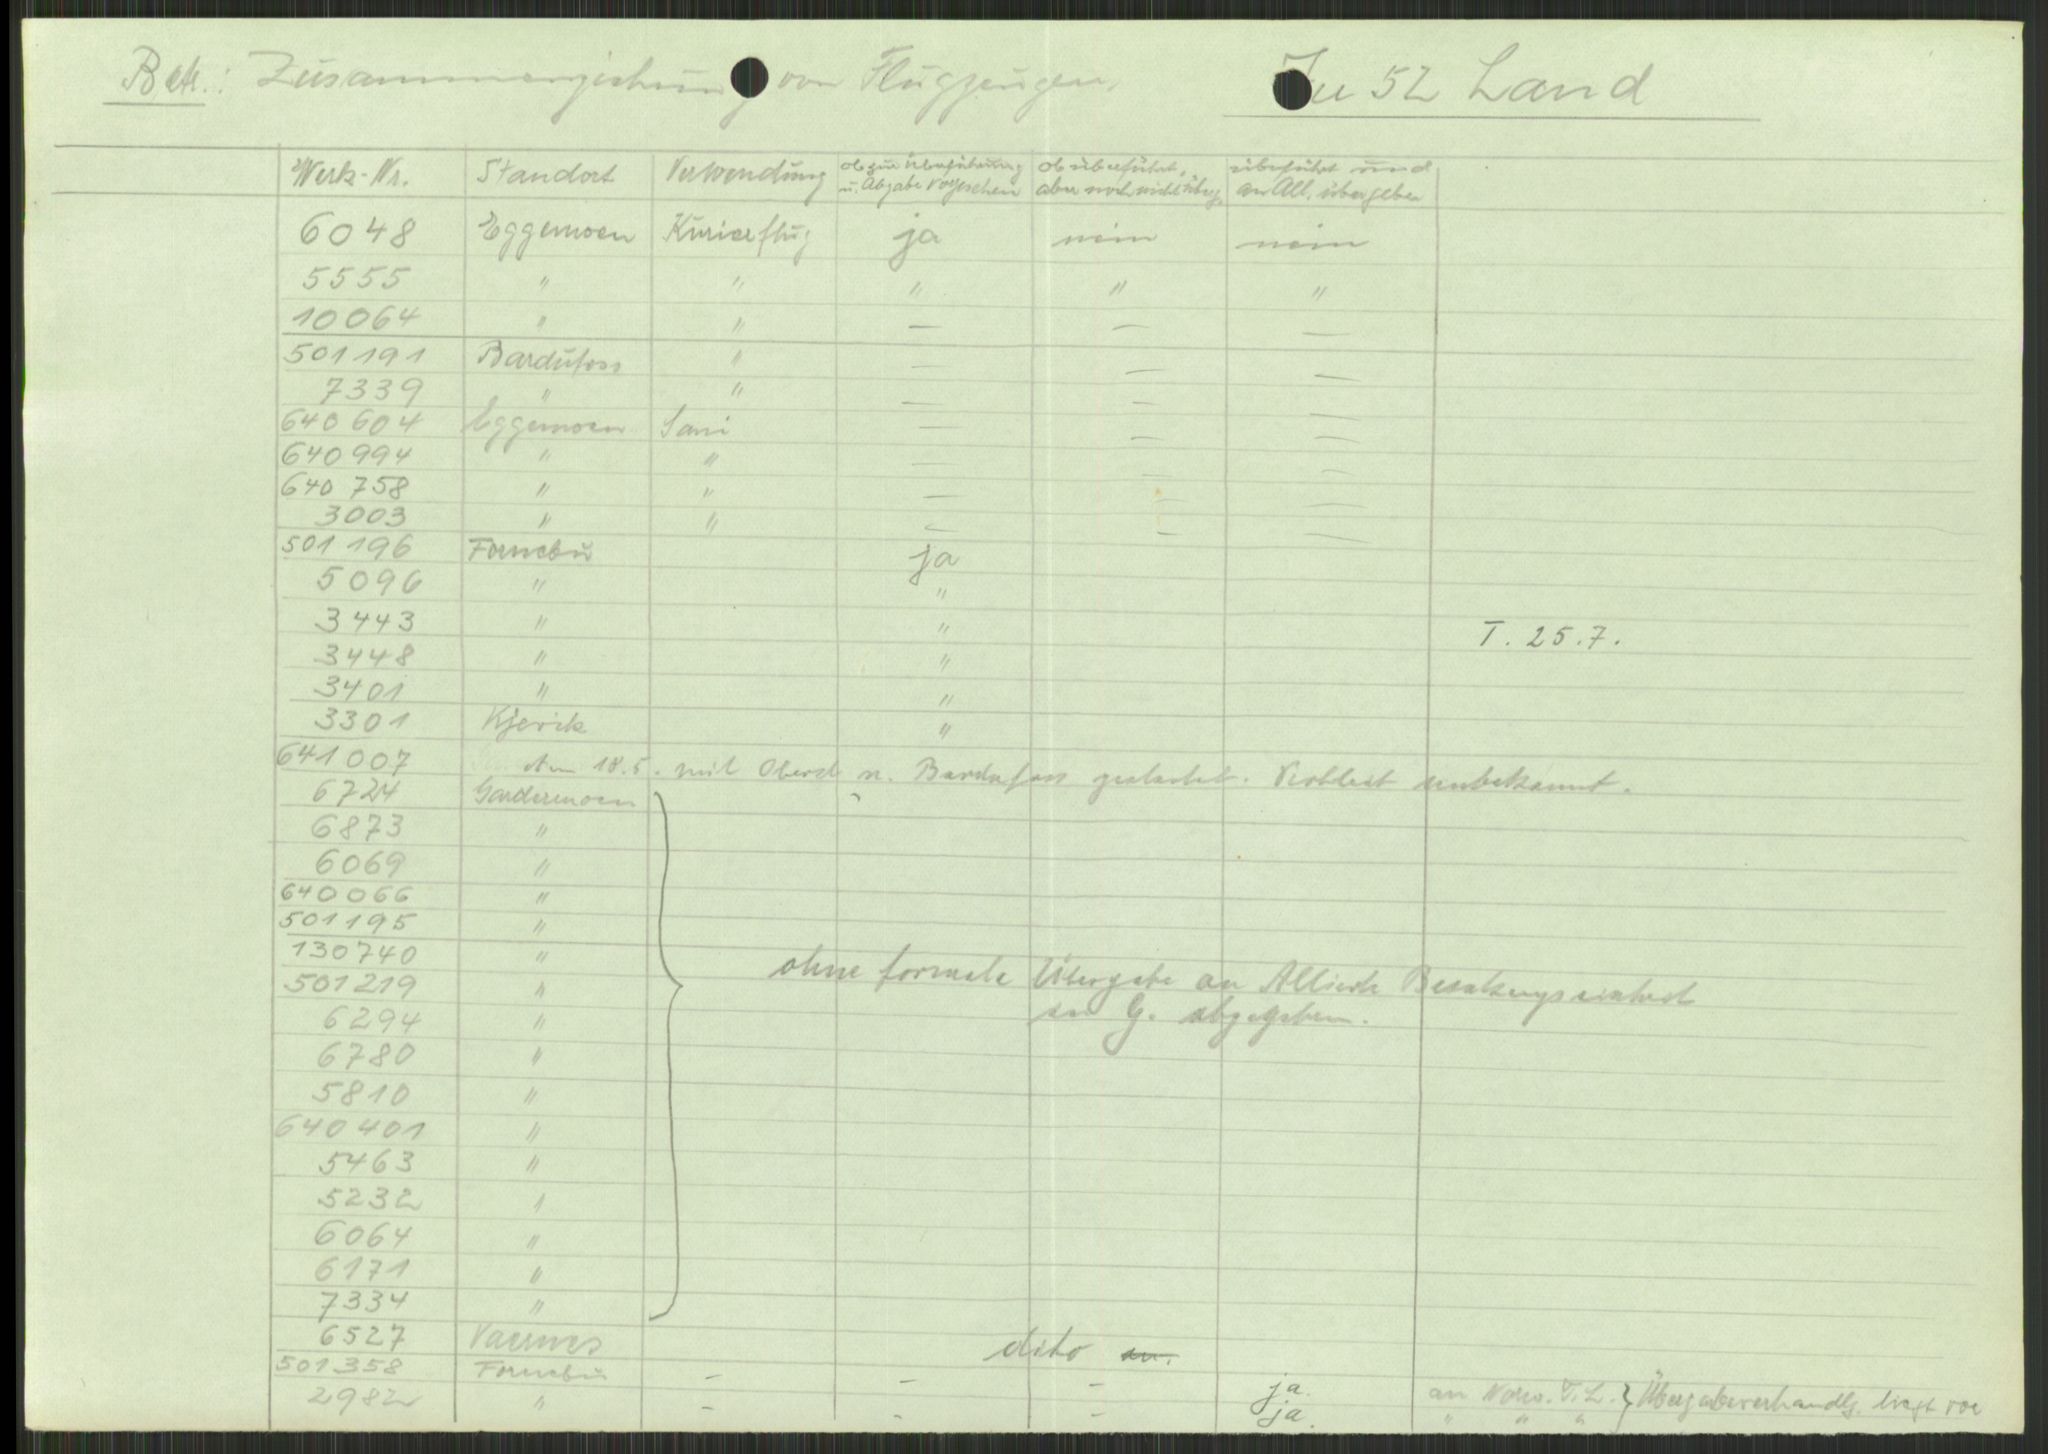 Betr.: Zusammenziehung von Flugzeugen. Ju 52 Land
Werk-Nr. Standort Verwendung ob zur Überführung u. Abgabe vorgesehen ob überführt, aber noch nicht überg. überführt und an All. übergeben
6048 Eggemoen Kurierflug ja nein nein
5555 " " " " "
10064 " " — — —
501191 Bardufoss " — — —
7339 " " — — —
640604 Eggemoen Sani — — —
640994 " " — — —
640758 " " — — —
3003 " " — — —
501196 Fornebu ja
5096 " "
3443 " " T. 25.7.
3448 " "
3401 " "
3301 Kjevik "
641007 Am 18.5. mit Oberst n. Bardufoss gestartet. Verbleib unbekannt.
6724 Gardermoen
6873 "
6069 "
640066 "
501195 "
130740 "
501219 " ohne formale Übergabe an Allierte Besatzungseinheit
6294 " in G. abgegeben.
6780 "
5810 "
640401 "
5463 "
5232 "
6064 "
6171 "
7334 "
6527 Vaernes dito
501358 Fornebu – – – ja. an Norw. T.L. } Übergabeverhandlg. liegt vor
2982 " – – – ja. " " "